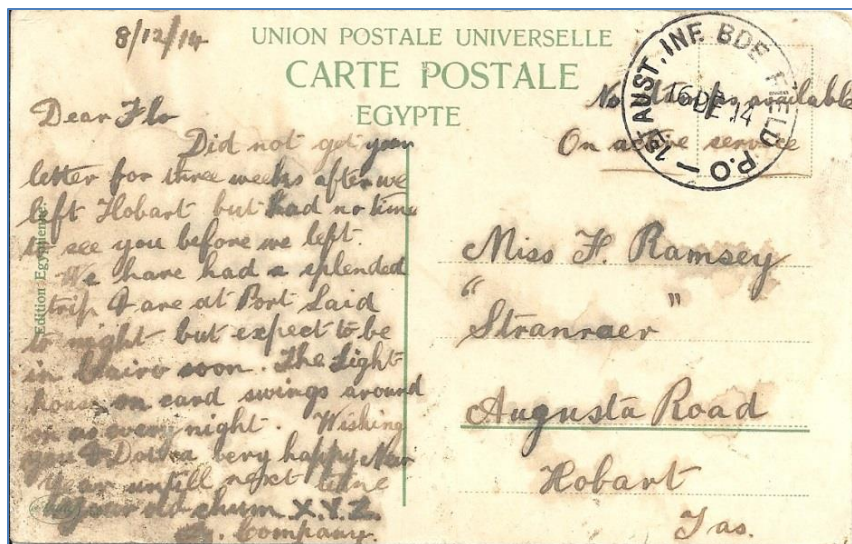 8/12/14
UNION POSTALE UNIVERSELLE
CARTE POSTALE
EGYPTE
1ST AUST. INF. BDE FIELD P.O
16 DE 14
No stamps available
On active service
Dear Flo
Did not get your
letter for three weeks after we
left Hobart but had no time
to see you before we left.
We have had a splendid
trip & are at Port Said
to night but expect to be
in Cairo soon. The Light
house on card swings around
on us every night. Wishing
you & a very happy New
Year untill next time
Your old chum X.Y.Z.
Company.
Edition Egyptienne.
Miss F. Ramsey
"Stranraer"
Augusta Road
Hobart
Tas.